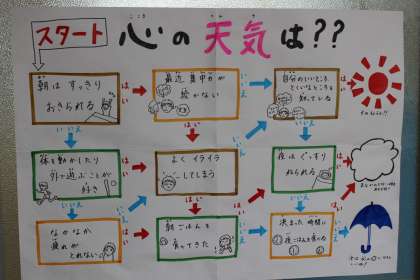 スタート 心の天気は??
こころ てんき
朝は すっきり
おきられる
はい
最近 集中力が
続かない
いいえ
自分のいいところ
とくいなところを
知っている
はい
いいえ
はい
いいえ
体を動かしたり
外で遊ぶことが
好き
はい
よく イライラ
してしまう
夜は ぐっすり
ねられる
はい
いいえ
はい
いいえ
なかなか
疲れが
とれない
朝ごはんを
食べてきた!
はい
決まった 時間に
夜ごはんを食べる
いいえ